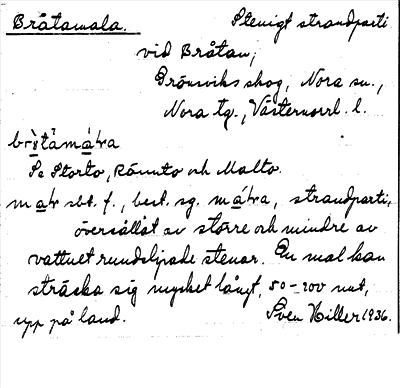 Bråtamala. Stenigt strandparti
vid Bråtan,
Grönsviks skog, Nora sn.,
Nora tg., Västernorrl. l.
Se Storto, Rämto och Malto.
sbt. f., best. sg. strandparti,
översållat av större och mindre av
vattnet rundslipade stenar. En mal kan
sträcka sig mycket långt, 50–200 mt,
upp på land. Sven Hiller 1936.